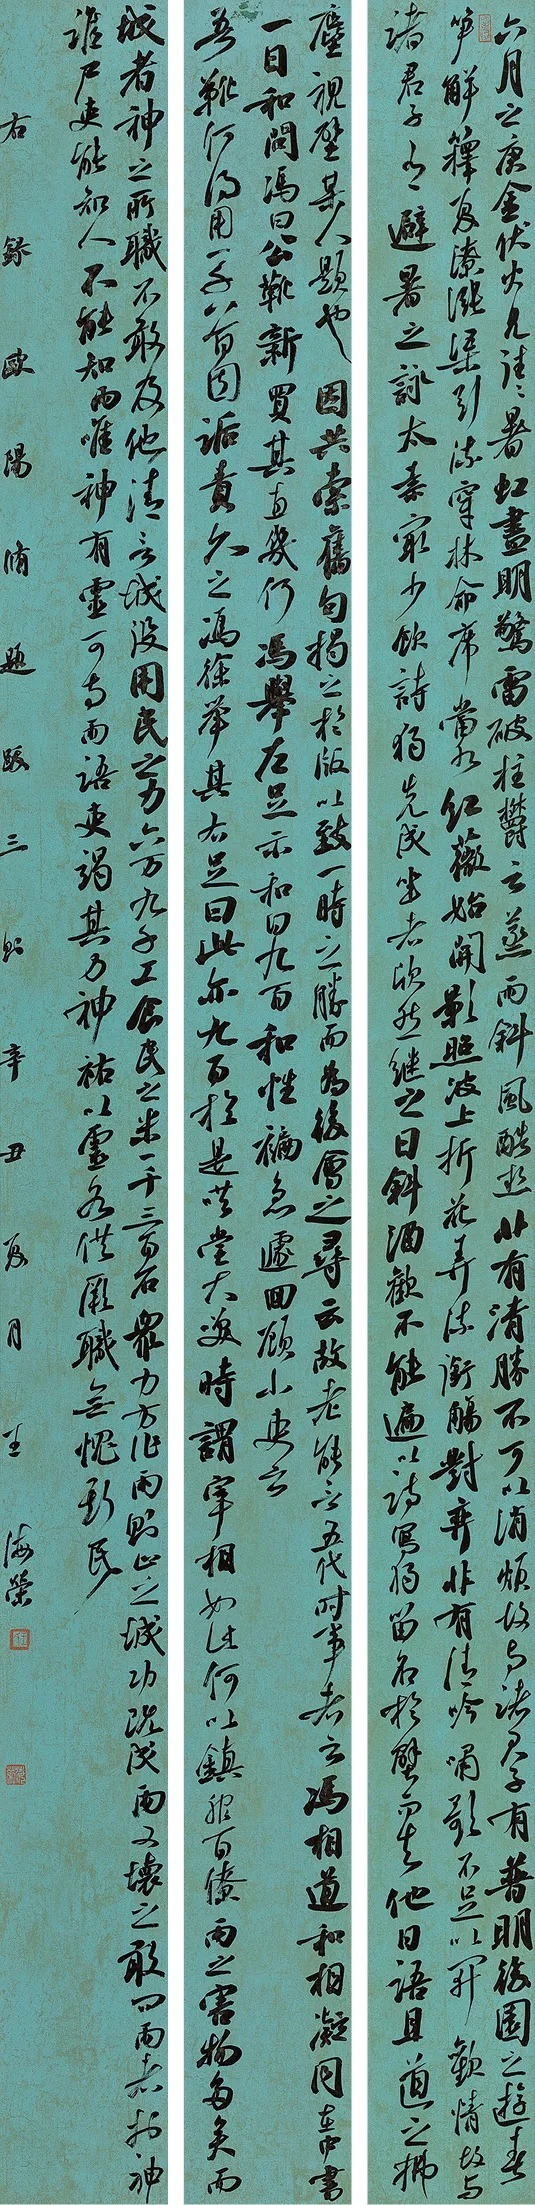 六月之庚金伏火見往往暑虹晝明驚雷破柱鬱雲蒸雨斜風酷熱非有清勝不可以消煩故與諸君子有普明後園之遊春
笋解籜夏潦漲渠引流穿林命席當水紅薇始開影照波上折花弄流銜觴對弈非有清吟嘯歌不足以開歡情故與
諸君子有避暑之詠太素最少飲詩獨先成坐者欣然繼之日斜酒歡不能遍以詩寫獨留名於壁而去他日語且道之拂
塵視壁某人題也因共索舊句揭之於版以致一時之勝而為後會之尋云故老能言五代時事者云馮相道和相凝同在中書
一日和問馮曰公靴新買其直幾何馮舉左足示和曰九百和性褊急遽回顧小吏云
吾靴何得用一千八百因詬責久之馮徐舉其右足曰此亦九百於是哄堂大笑時謂宰相如此何以鎮服百僚雨之害物多矣而
城者神之所職不敢及他請言城役用民之力六萬九千工食民之米一千三百石眾力方作雨則止之城功既成雨又壞之敢問雨者於神
誰尸吏能知人不能知雨唯神有靈可與雨語吏竭其力神祐以靈各供厥職無愧斯民
右錄歐陽脩題跋三則辛丑夏月王海榮